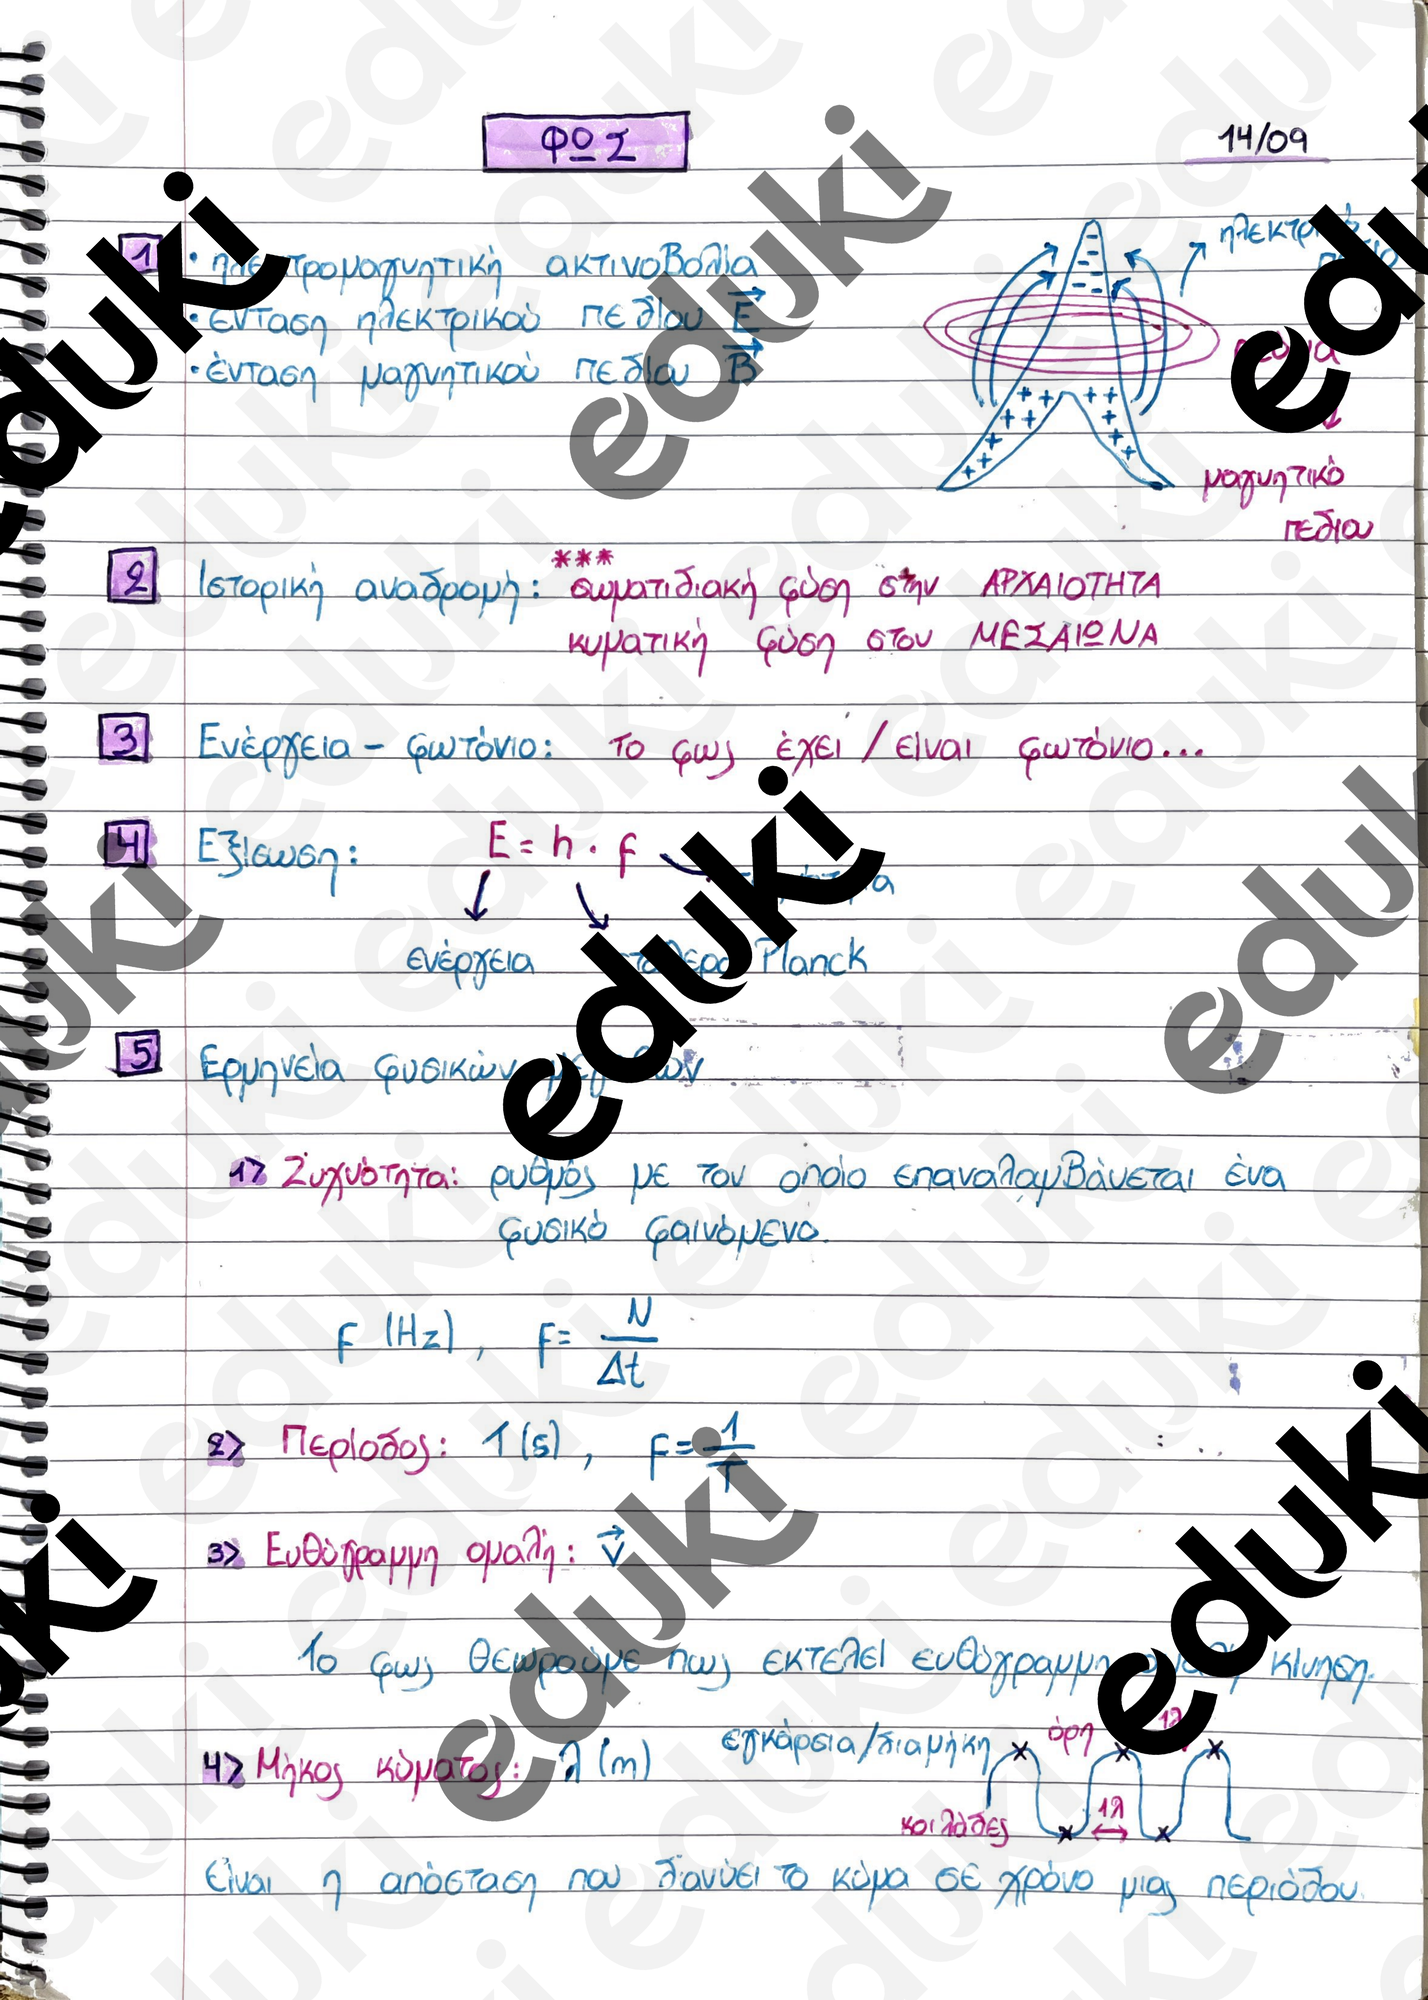 ΦΩΣ
14/09
1 • ηλεκτρομαγνητική ακτινοβολία
• ένταση ηλεκτρικού πεδίου E
• ένταση μαγνητικού πεδίου B
μαγνητικό
πεδίου
2 Ιστορική αναδρομή: *** σωματιδιακή φύση στην ΑΡΧΑΙΟΤΗΤΑ
κυματική φύση στον ΜΕΣΑΙΩΝΑ
3 Ενέργεια - φωτόνιο: το φως έχει / είναι φωτόνιο...
4 Εξίσωση: E = h · f
ενέργεια Planck
5 Ερμηνεία φυσικών
1> Συχνότητα: ρυθμός με τον οποίο επαναλαμβάνεται ένα
φυσικό φαινόμενο.
f (Hz), f = N/Δt
2> Περίοδος: T (s), f = 1/T
3> Ευθύγραμμη ομαλή: v
Το φως θεωρούμε πως εκτελεί ευθύγραμμη κίνηση.
4> Μήκος κύματος: λ (m) εγκάρσια/διαμήκη όρη 1λ
κοιλάδες 1λ
Είναι η απόσταση που διανύει το κύμα σε χρόνο μιας περιόδου.
eduki
eduki
eduki
eduki
eduki
eduki
eduki
eduki